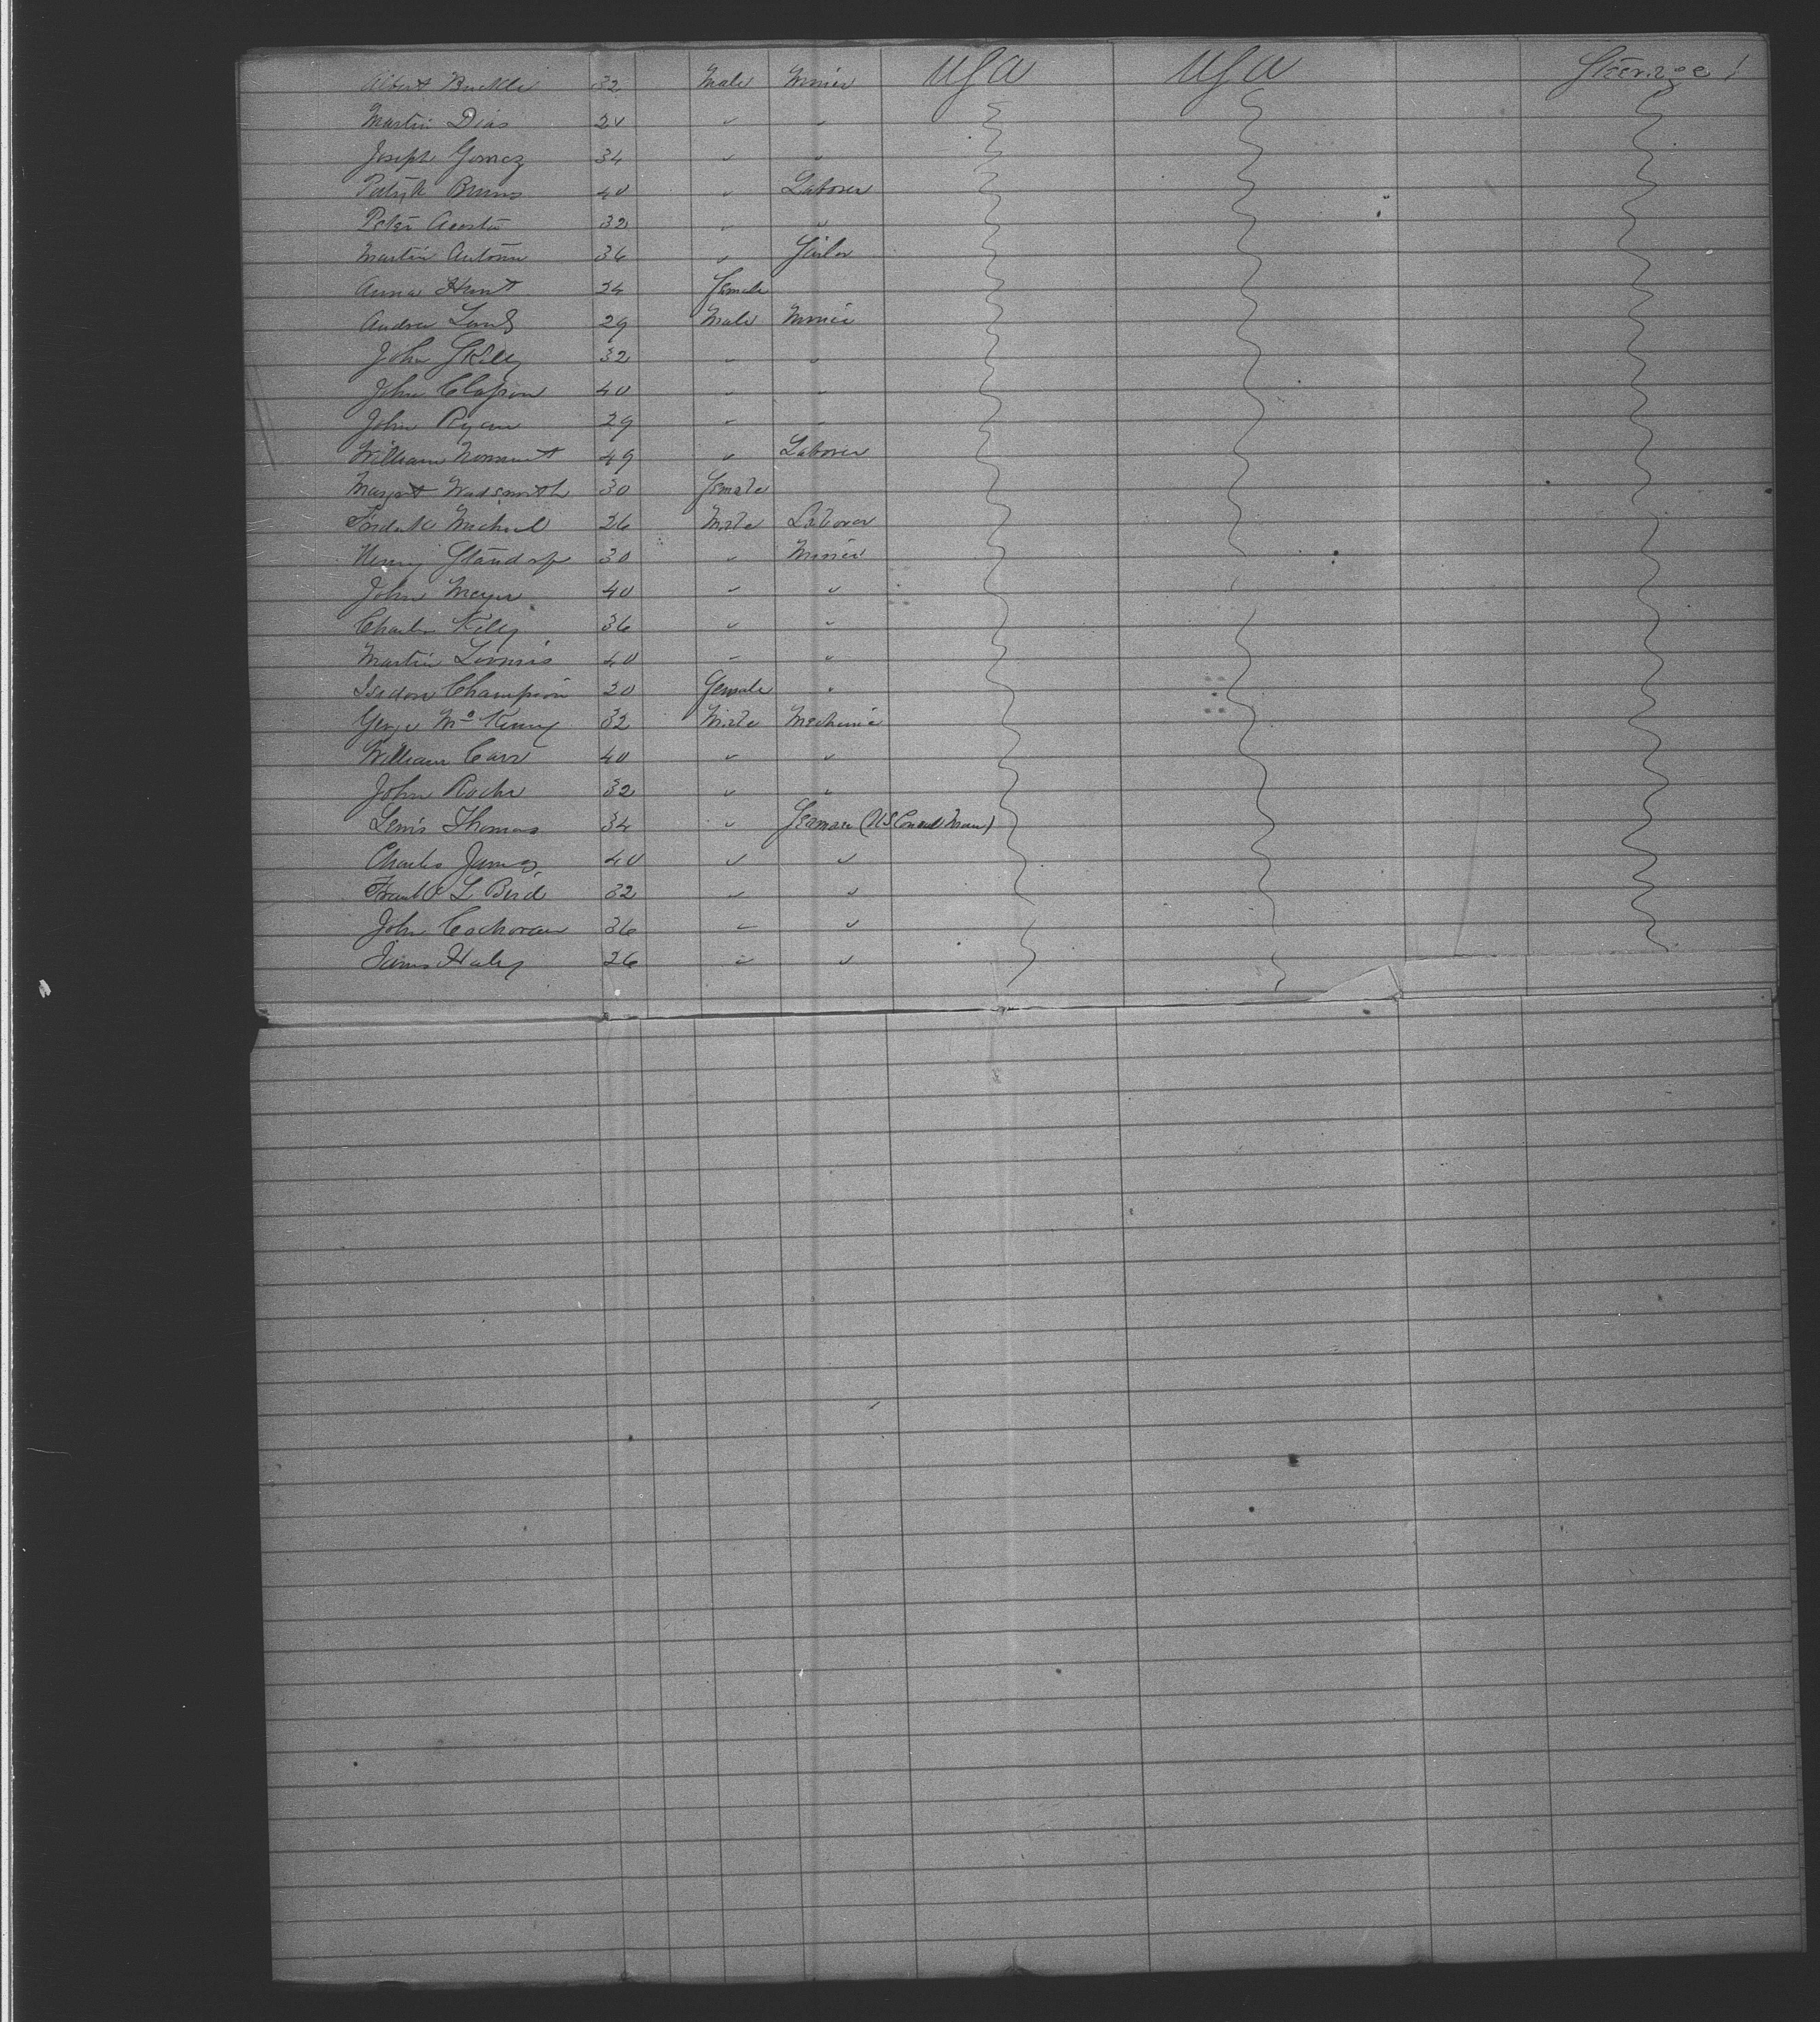 Albert Buckler 32 Male Miner USA USA Steerage
Martin Dias 20 " "
Joseph Gomez 34 " "
Patrick Burns 40 " Laborer
Peter Acosta 32 " "
Martin Antonu 36 " Sailor
Anna Hunt 24 Female
Andrew 29 Male Miner
John Skilly 32 " "
John Clapson 40 " "
John Ryan 29 " "
William 49 " Laborer
Margart Wadsworth 30 Female
Fredek Michael 26 Male Laborer
Henry 30 " Miner
John Meyer 40 " "
Charles Killy 36 " "
Martin Loomis 40 " "
Isadore Champion 20 Female "
George McKenny 32 Male Mechanic
William Carr 40 " "
John Roche 32 " "
Lewis Thomas 34 " Seaman (US Consul Man)
Charles James 40 " "
Frank L. Bird 32 " "
John Cochoran 36 " "
James Haley 26 " "